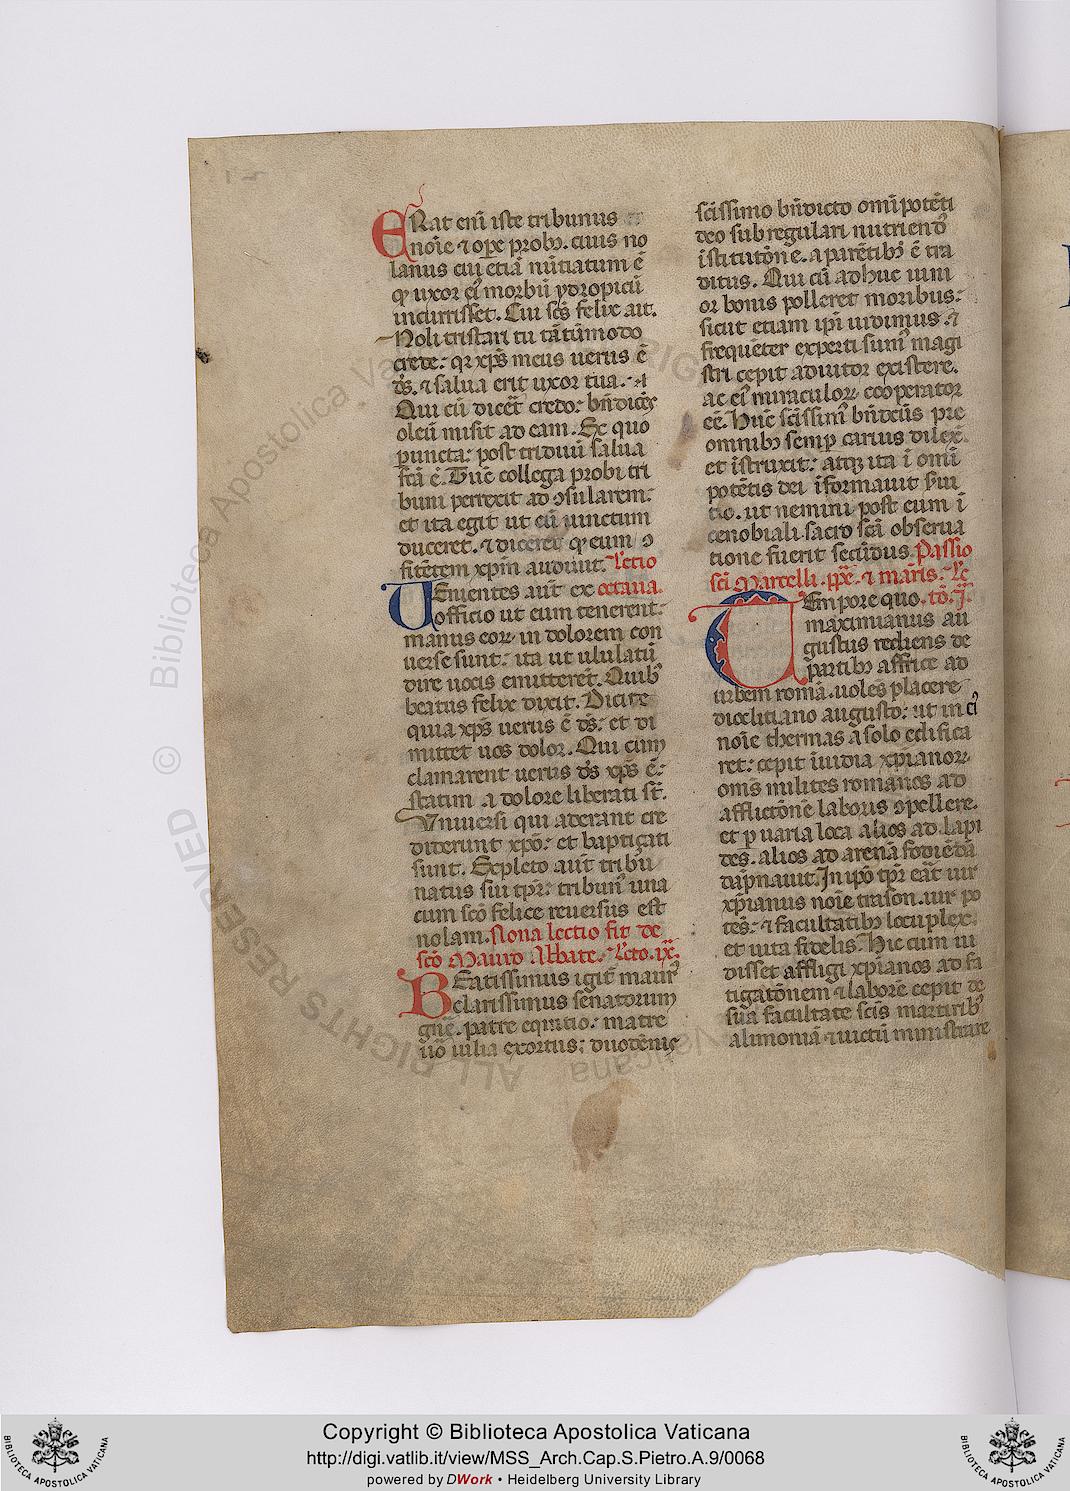 ERat eni͂ iste tribunus
no͂ie ⁊ ope probꝰ. cuius no
lanus cui etia͂ nu͂tiatum e͂
qꝫ uxor eiꝰ morbu͂ ydropicu͂
incurrisset. Cui sc͂s felix ait.
Noli tristari tu ta͂tu͂modo
crede: qꝛ xp͂s meus uerus e͂
d͂s. ⁊ salua erit uxor tua.
Qui cu͂ dicet͂ credo: bn͂dice͂s
oleu͂ misit ad eam. Ex quo
puncta: post triduu͂ salua
fc͂a e͂. Tu͂c collega probi tri
buni perrexit ad ꝯsularem:
et ita egit ut eu͂ uinctum
duceret. ⁊ diceret qꝫ eum ꝯ
fite͂tem xpm audiuit. Lectio
UEnientes aut͂ ex octaua.
officio ut eum tenerent:
manus eoꝝ in dolorem con
uerse sunt: ita ut ululatu͂
dire uocis emitteret͂. Quibꝰ
beatus felix dixit. Dicite
quia xp͂s uerus e͂ d͂s: et di
mittet uos dolor. Qui cum
clamarent uerus d͂s xp͂s e͂:
statim a dolore liberati st͂.
Uniuersi qui aderant cre
diderunt xp͂o: et baptiçati
sunt. Expleto aut͂ tribu
natus sui tp͂r: tribunꝰ una
cum sc͂o felice reuersus est
nolam. Nona lectio fit de
sc͂o Mauro Abbate. Lc͂to. ix.
BEatissimus igit͂ maurꝰ
clarissimus senatorum
gn͂e. patre equitio: matre
uo͂ iulia exortus: duode͂nis
sc͂issimo bn͂dicto omi͂pote͂ti
deo sub regulari nutriendꝰ
i͂stituto͂ne. a pare͂tibꝰ e͂ tra
ditus. Qui cu͂ adhuc iuni
or bonis polleret moribus:
sicut etiam ip͂i uidimus. ⁊
freque͂ter experti sumꝰ magi
stri cepit adiutor existere.
ac eiꝰ miraculoꝝ cooperator
ee͂. Hu͂c sc͂issimꝰ bn͂dc͂us pre
omnibꝰ semp carius dilex͂.
et i͂struxit: atqꝫ ita i͂ omi͂
pote͂tis dei i͂formauit s͂ui
tio. ut nemini post eum i͂
cenobiali sacro sc͂a obserua
tione fuerit secu͂dus. Passio
sc͂i Marcelli. pp͂e. ⁊ ma͂ris. Lc͂
TEmpore quo. to͂. j͂.
maximianus au
gustus rediens de
partibꝰ affrice ad
urbem roma͂. uole͂s placere
diocliciano augusto: ut in eiꝰ
no͂ie thermas a solo edifica
ret: cepit i͂uidia xp͂ianoꝝ
om͂s milites romanos ad
afflicto͂ne laboris ꝯpellere.
et p uaria loca alios ad lapi
des. alios ad arena͂ fodie͂da͂
da͂pnauit. In ip͂o tp͂r eat͂ uir
xp͂ianus no͂ie trason. uir po
te͂s: ⁊ facultatibꝰ locuplex.
et uita fidelis. Hic cum ui
disset affligi xp͂ianos ad fa
tigato͂nem ⁊ labore͂ cepit de
sua͂ facultate sc͂is martiribꝰ
alimonia͂ ⁊ uictu͂ ministrare
Copyright © Biblioteca Apostolica Vaticana
http://digi.vatlib.it/view/MSS_Arch.Cap.S.Pietro.A.9/0068
powered by DWork • Heidelberg University Library
BIBLIOTECA APOSTOLICA VATICANA
BIBLIOTECA APOSTOLICA VATICANA
© Biblioteca Apostolica Vaticana
ALL RIGHTS RESERVED